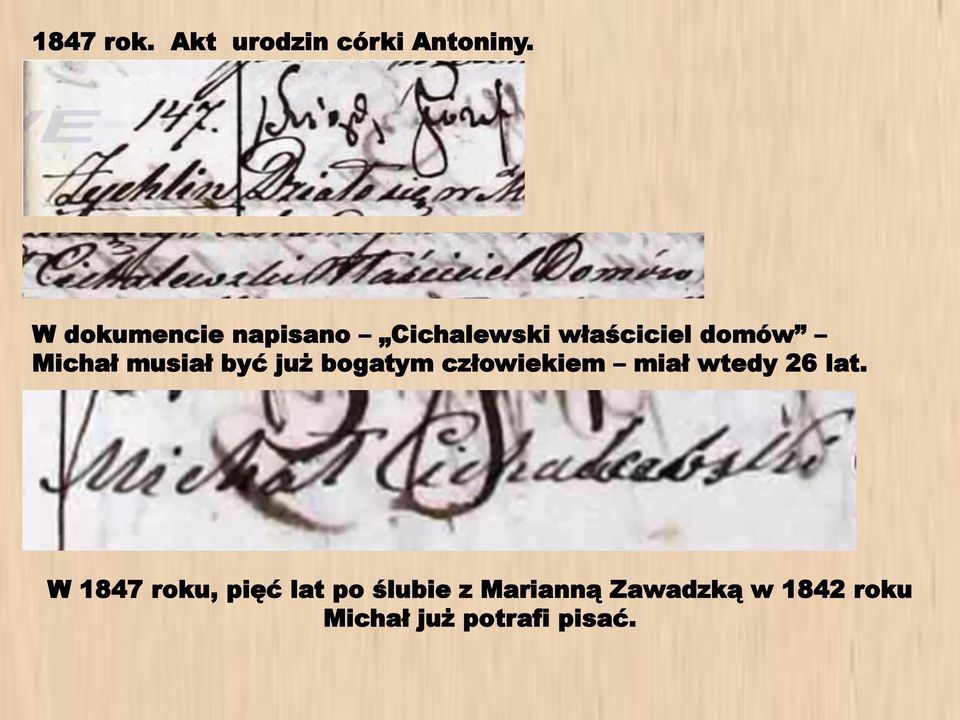 1847 rok. Akt urodzin córki Antoniny.
147.
Józef
Żychlin Działo się w
Cichalewski Właściciel Domów
W dokumencie napisano – „Cichalewski właściciel domów” –
Michał musiał być już bogatym człowiekiem – miał wtedy 26 lat.
Michał Cichalewski
W 1847 roku, pięć lat po ślubie z Marianną Zawadzką w 1842 roku
Michał już potrafi pisać.